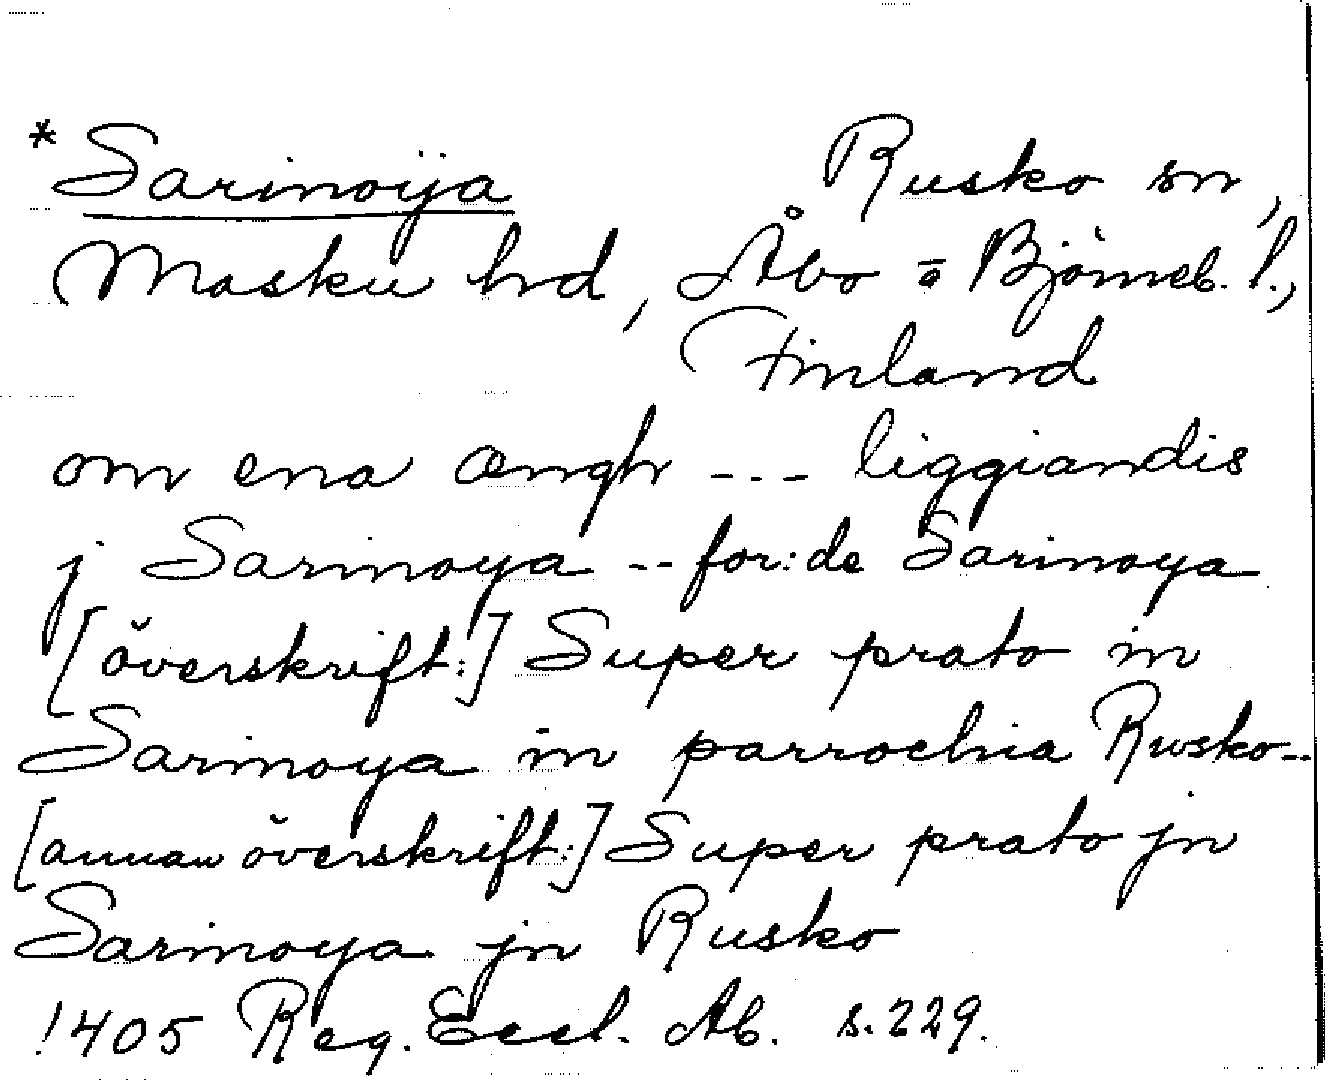 * Sarinoija Rusko sn,
Masku hd, Åbo = Björneb. l.,
Finland
om ena ængh --- liggiandis
j Sarinoya -- for:de Sarinoya
[överskrift:] Super prato in
Sarinoya in parrochia Rusko--
[annan överskrift:] Super prato jn
Sarinoya jn Rusko
1405 Reg. Eccl. Ab. s. 229.